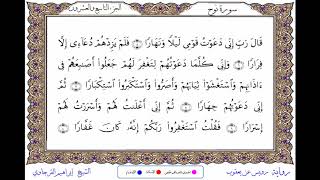 سورة نوح الجزء التاسع والعشرون
قَالَ رَبِّ إِنِّى دَعَوْتُ قَوْمِى لَيْلًا وَنَهَارًا فَلَمْ يَزِدْهُمْ دُعَآءِى إِلَّا
فِرَارًا وَإِنِّى كُلَّمَا دَعَوْتُهُمْ لِتَغْفِرَ لَهُمْ جَعَلُوٓا۟ أَصَـٰبِعَهُمْ فِىٓ
ءَاذَانِهِمْ وَٱسْتَغْشَوْا۟ ثِيَابَهُمْ وَأَصَرُّوا۟ وَٱسْتَكْبَرُوا۟ ٱسْتِكْبَارًا ثُمَّ
إِنِّى دَعَوْتُهُمْ جِهَارًا ثُمَّ إِنِّىٓ أَعْلَنتُ لَهُمْ وَأَسْرَرْتُ لَهُمْ
إِسْرَارًا فَقُلْتُ ٱسْتَغْفِرُوا۟ رَبَّكُمْ إِنَّهُۥ كَانَ غَفَّارًا
رواية رويس عن يعقوب الشيخ إبراهيم